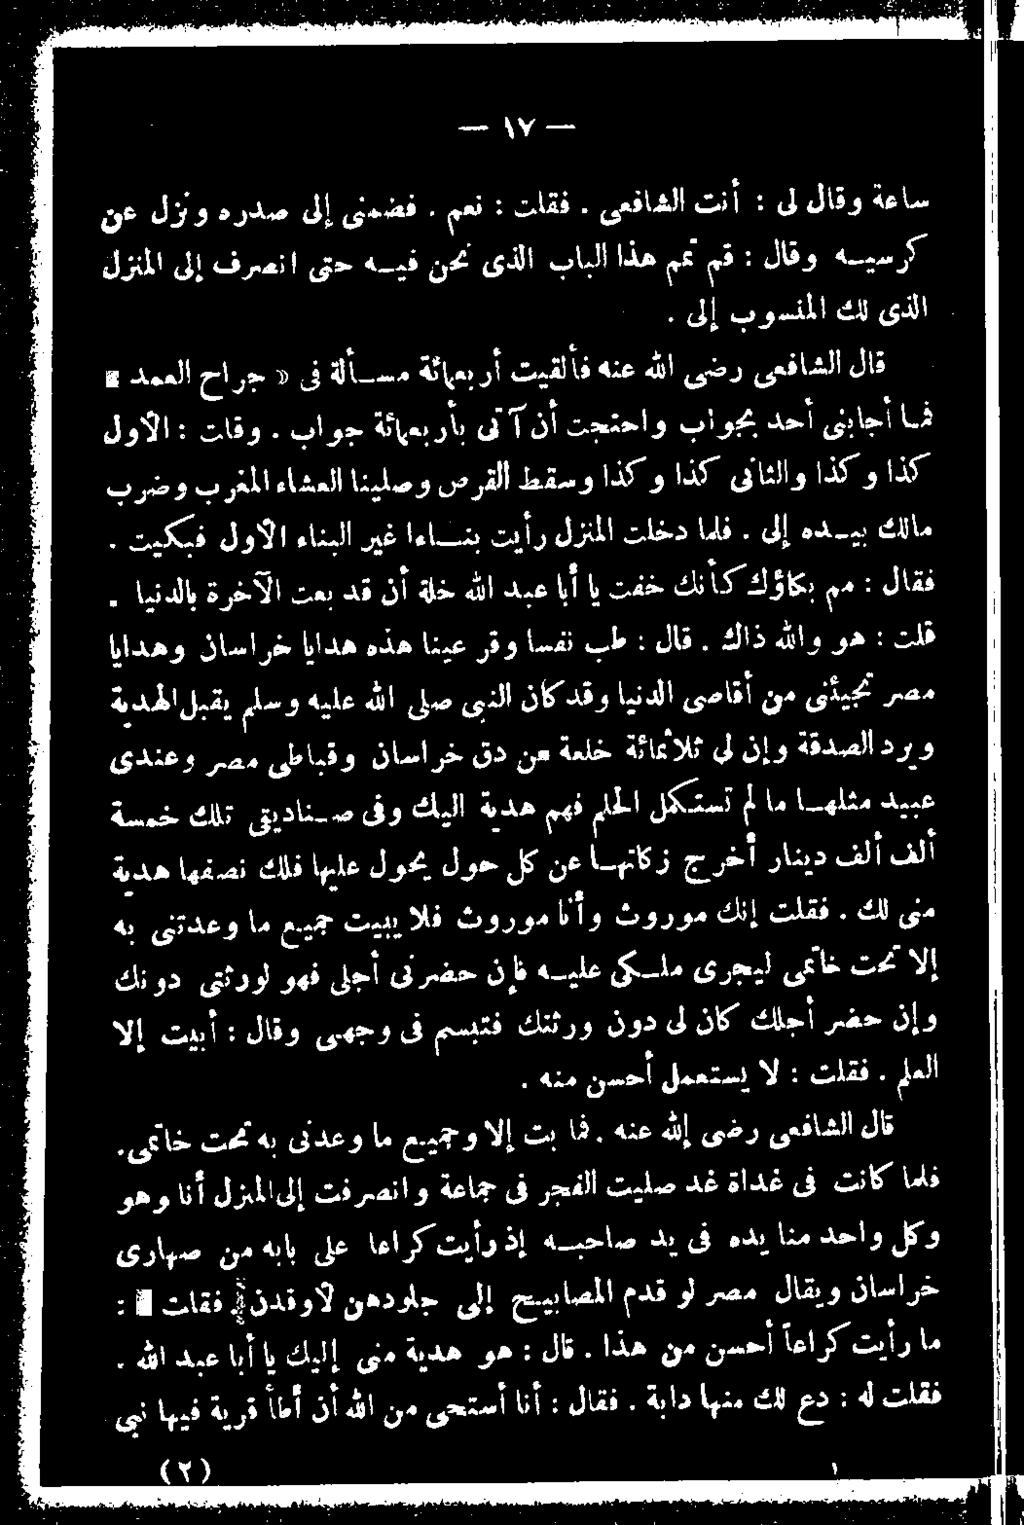 — ١٧ —
ساعة وقال لى : أنت الشافعى . فقلت : نعم . فضمنى إلى صدره ونزل عن
كرسيه وقال : قم تمم هذا الباب الذى نحن فيه حتى انصرف إلى المنزل
الذى لك المنسوب إلى .
قال الشافعى رضى الله عنه فألقيت أربعمائة مسألة فى « جراح العمد »
فما أجابنى أحد بجواب واحتجت أن آتى بأربعمائة جواب . وقلت : الأول
كذا وكذا والثانى كذا وكذا وسقط القرص وصلينا العشاء المغرب وضرب
مالك بيده إلى . فلما دخلت المنزل رأيت بناءا غير البناء الأول فبكيت .
فقال : مم بكاؤك كأنك خفت يا أبا عبد الله خلة أن قد بعت الآخرة بالدنيا .
قلت : هو والله ذاك . قال : طب نفسا وقر عينا هذه هدايا خراسان وهدايا
مصر تجيئنى من أقاصى الدنيا وقد كان النبى صلى الله عليه وسلم يقبل الهدية
ويرد الصدقة وإن لى ثلاثمائة خلعة من دق خراسان وقباطى مصر وعندى
عبيد مثلها ما لم تستكمل الحلم فهم هدية اليك وفى صناديقى تلك خمسة
ألف ألف دينار أخرج زكاتها عن كل حول يحول عليها فلك نصفها هدية
منى لك . فقلت إنك موروث وأنا موروث فلا يبيت جميع ما وعدتنى به
إلا تحت خاتمى ليجرى ملكى عليه فإن حضرنى أجلى فهو لورثتى دونك
وإن حضر أجلك كان لى دون ورثتك فتبسم فى وجهى وقال : أبيت إلا
العلم . فقلت : لا يستعمل أحسن منه .
قال الشافعى رضى الله عنه . فما بت إلا وجميع ما وعدنى به تحت خاتمى .
فلما كانت فى غداة غد صليت الفجر فى جماعة وانصرفت إلى المنزل أنا وهو
وكل واحد منا يده فى يد صاحبه إذ رأيت كراعا على بابه من صهارى
خراسان ويقال مصر لو قدم المصابيح إلى جلودهن لأوقدن فقلت :
ما رأيت كراعاً أحسن من هذا . قال : هو هدية منى إليك يا أبا عبد الله .
فقلت له : دع لك منها دابة . فقال : أنا أستحى من الله أن أطأ قرية فيها نبى
(٢)